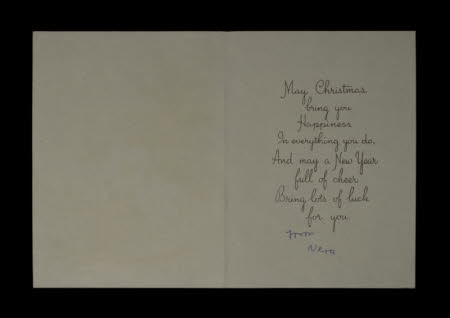 May Christmas
bring you
Happiness
In everything you do,
And may a New Year
full of cheer
Bring lots of luck
for you.
from